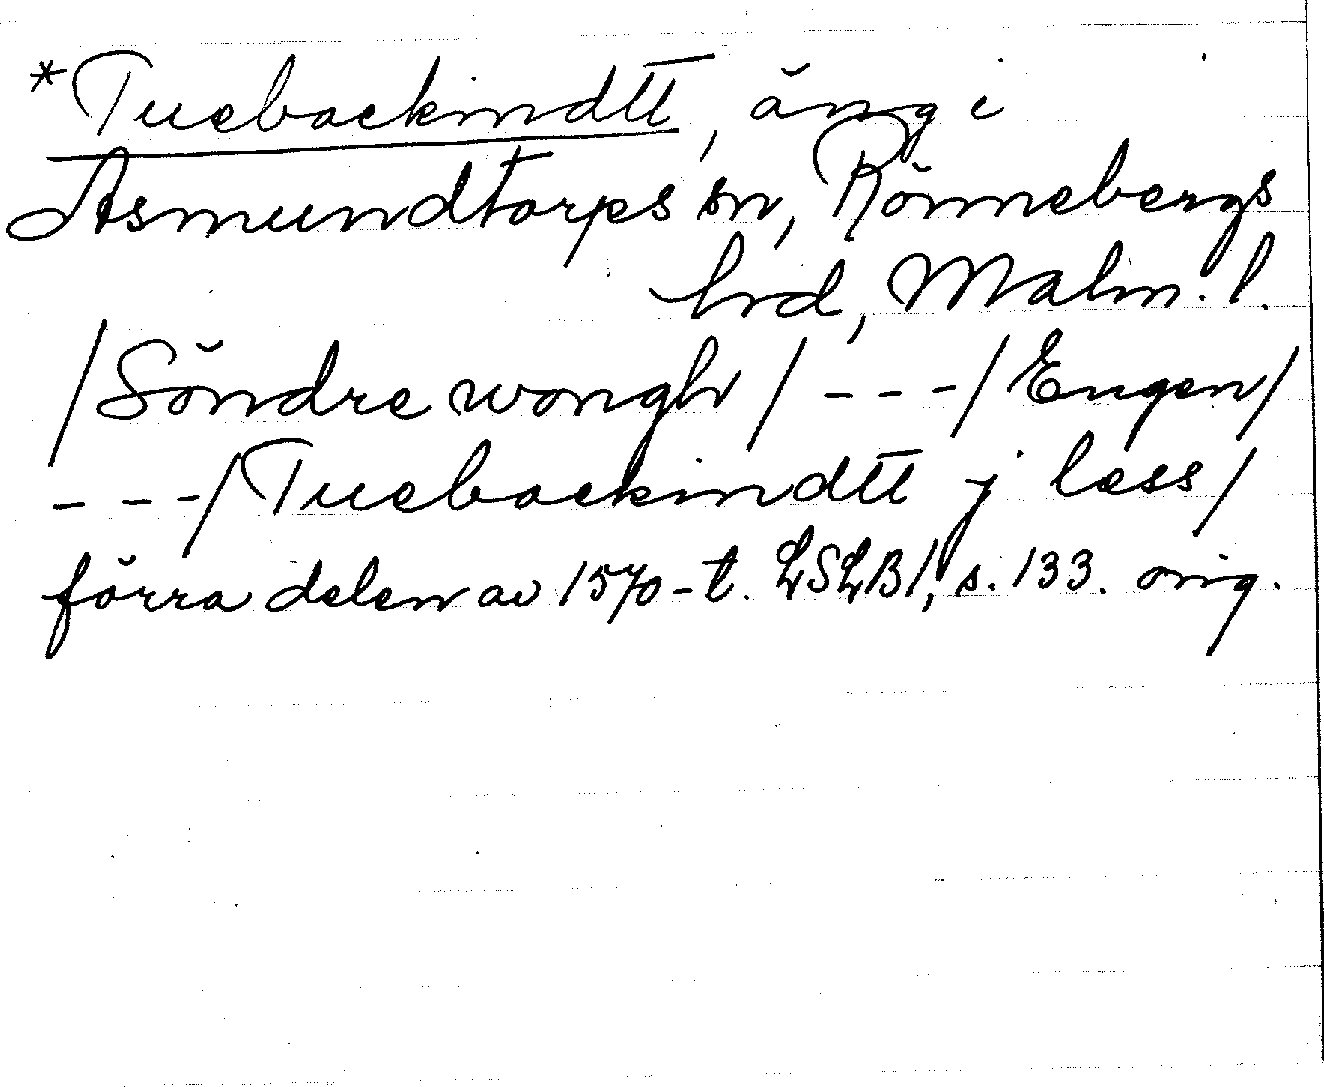 *Tuebackindtt, äng i
Asmundtorps sn, Rönnebergs
hrd, Malm. l.
/Söndre wongh/ - - -/Engen/
- - -/Tuebackindtt jless/
förra delen av 1570-t. LSLB1, s. 133. orig.